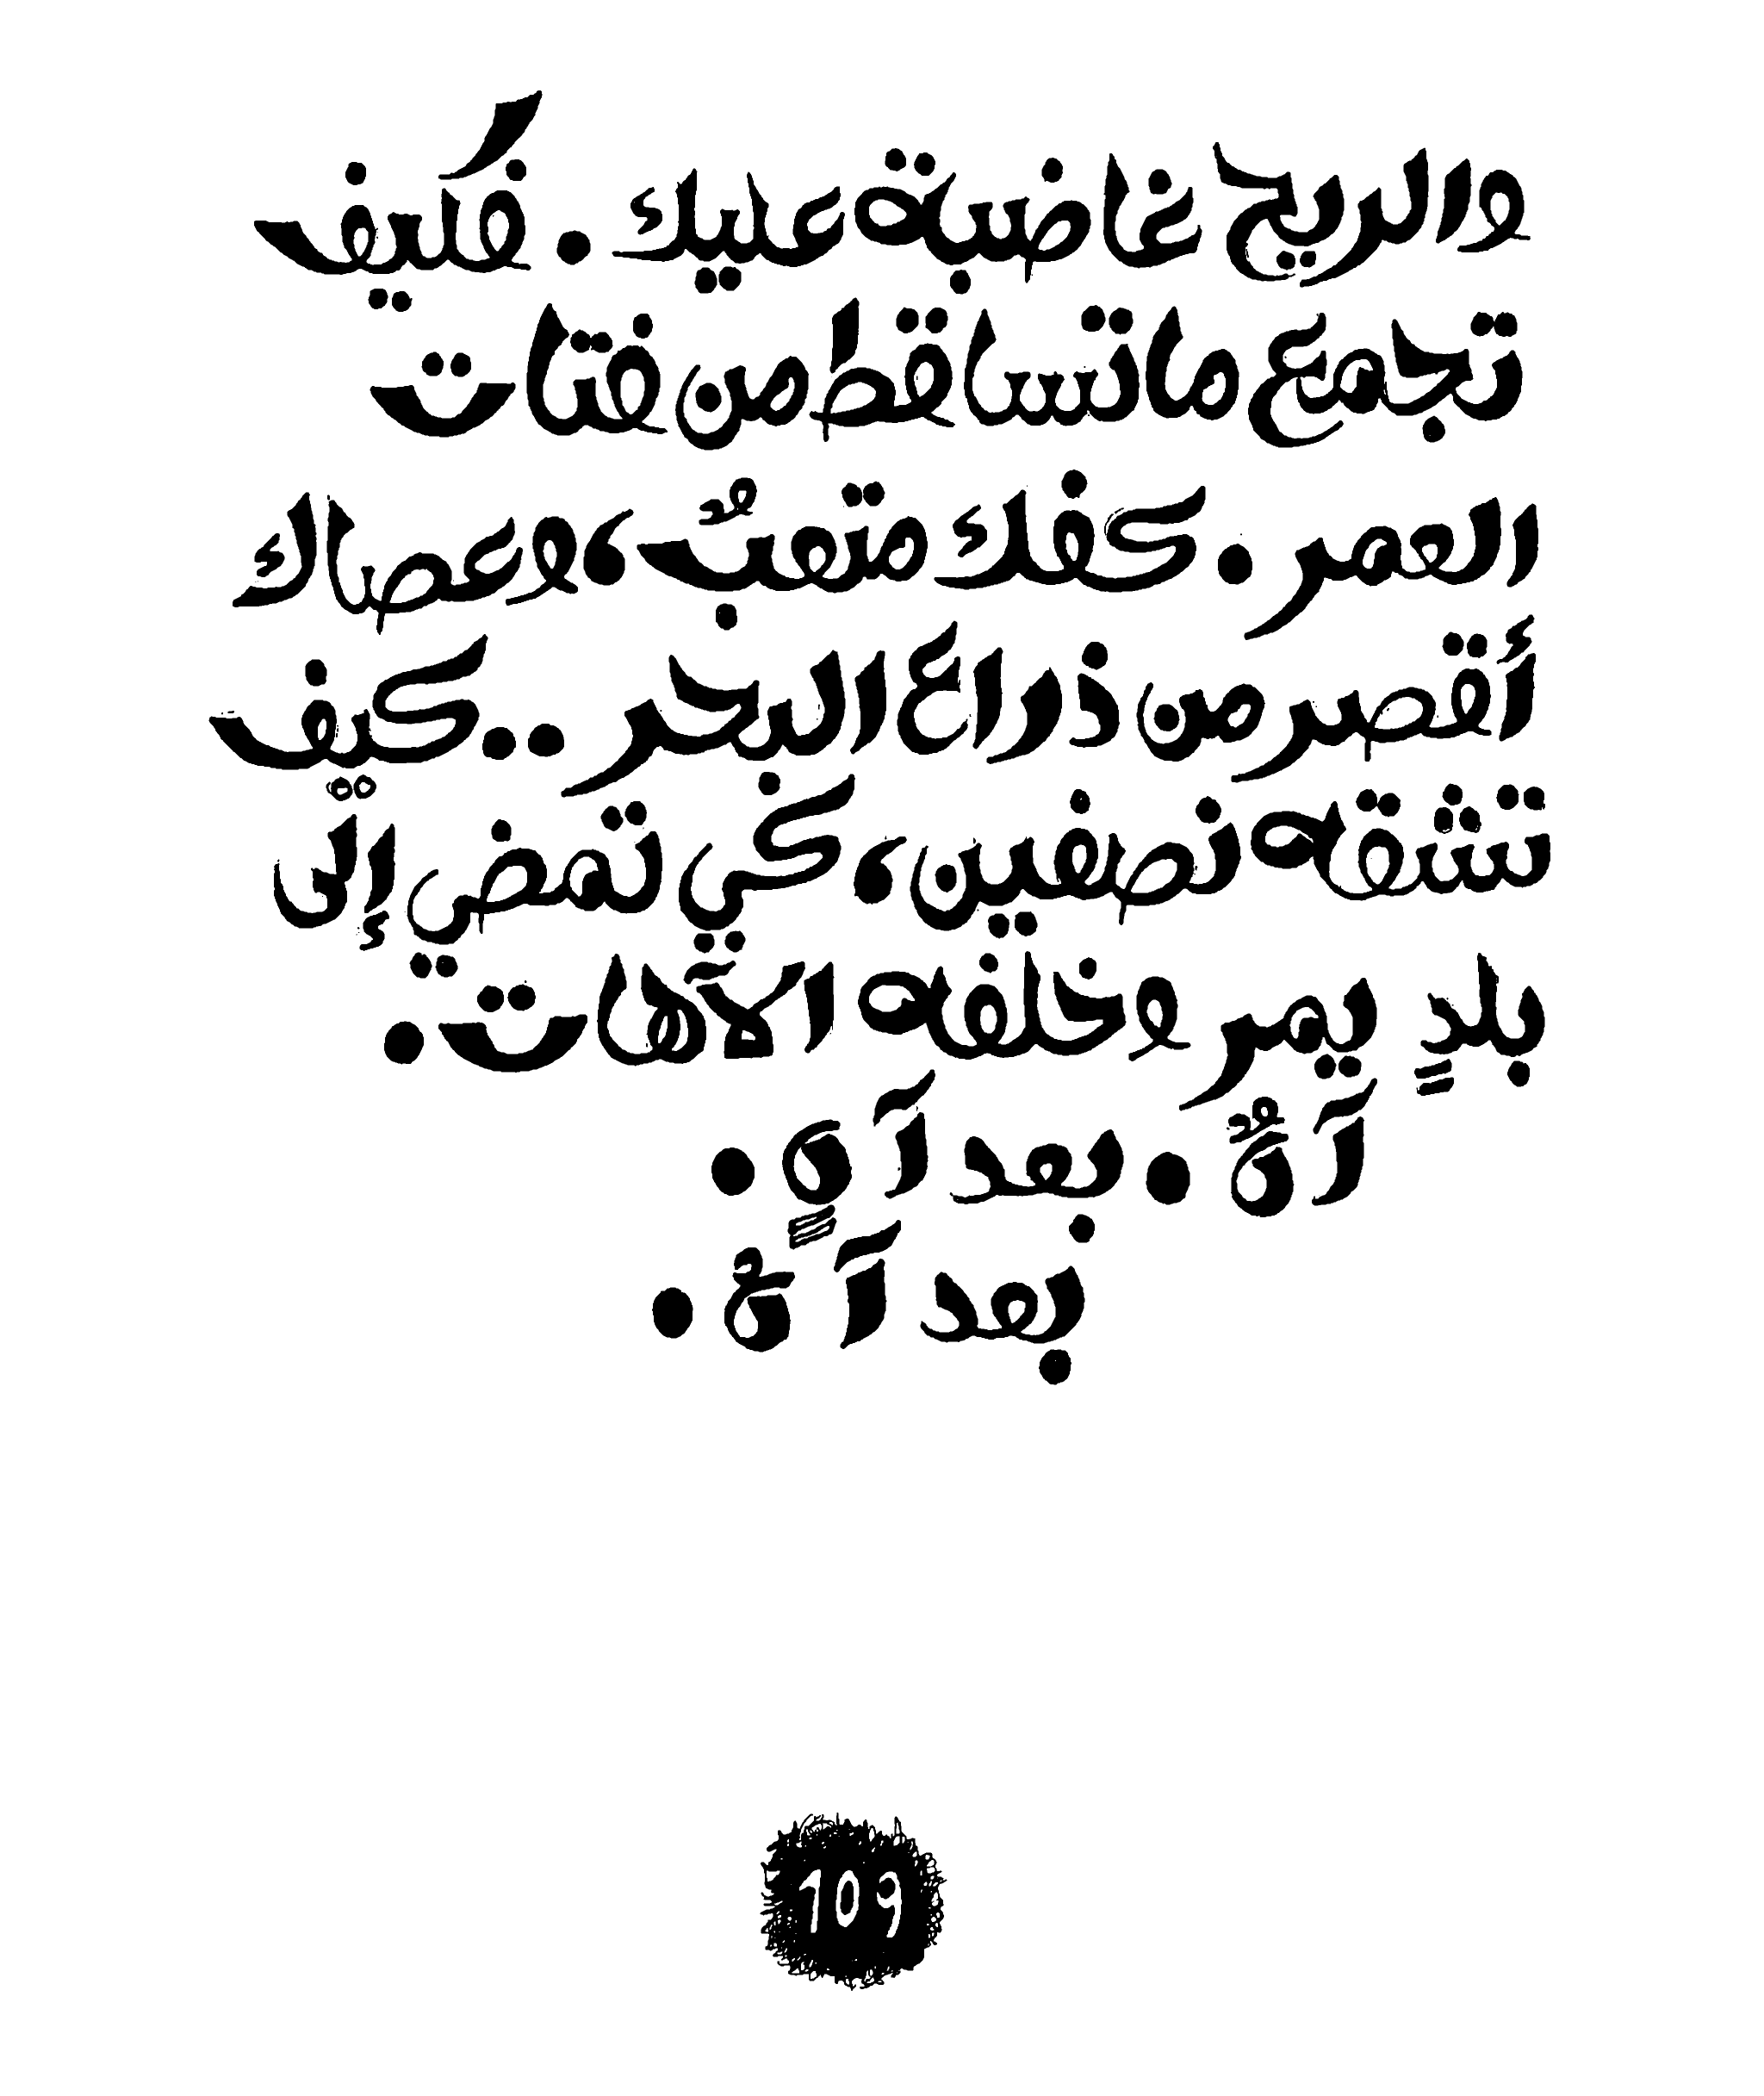 والريح غاضبة عليك. فكيف
تجمع ما تساقط من فتات
العمر. كفك متعبٌ، وعصاك
أقصر من ذراع البحر.. كيف
تشقه نصفين، كي تمضي إلى
بلدٍ يمر وخلفه الآهات.
آنٌ. بعد آنٍ.
بعد آنٌ.
109